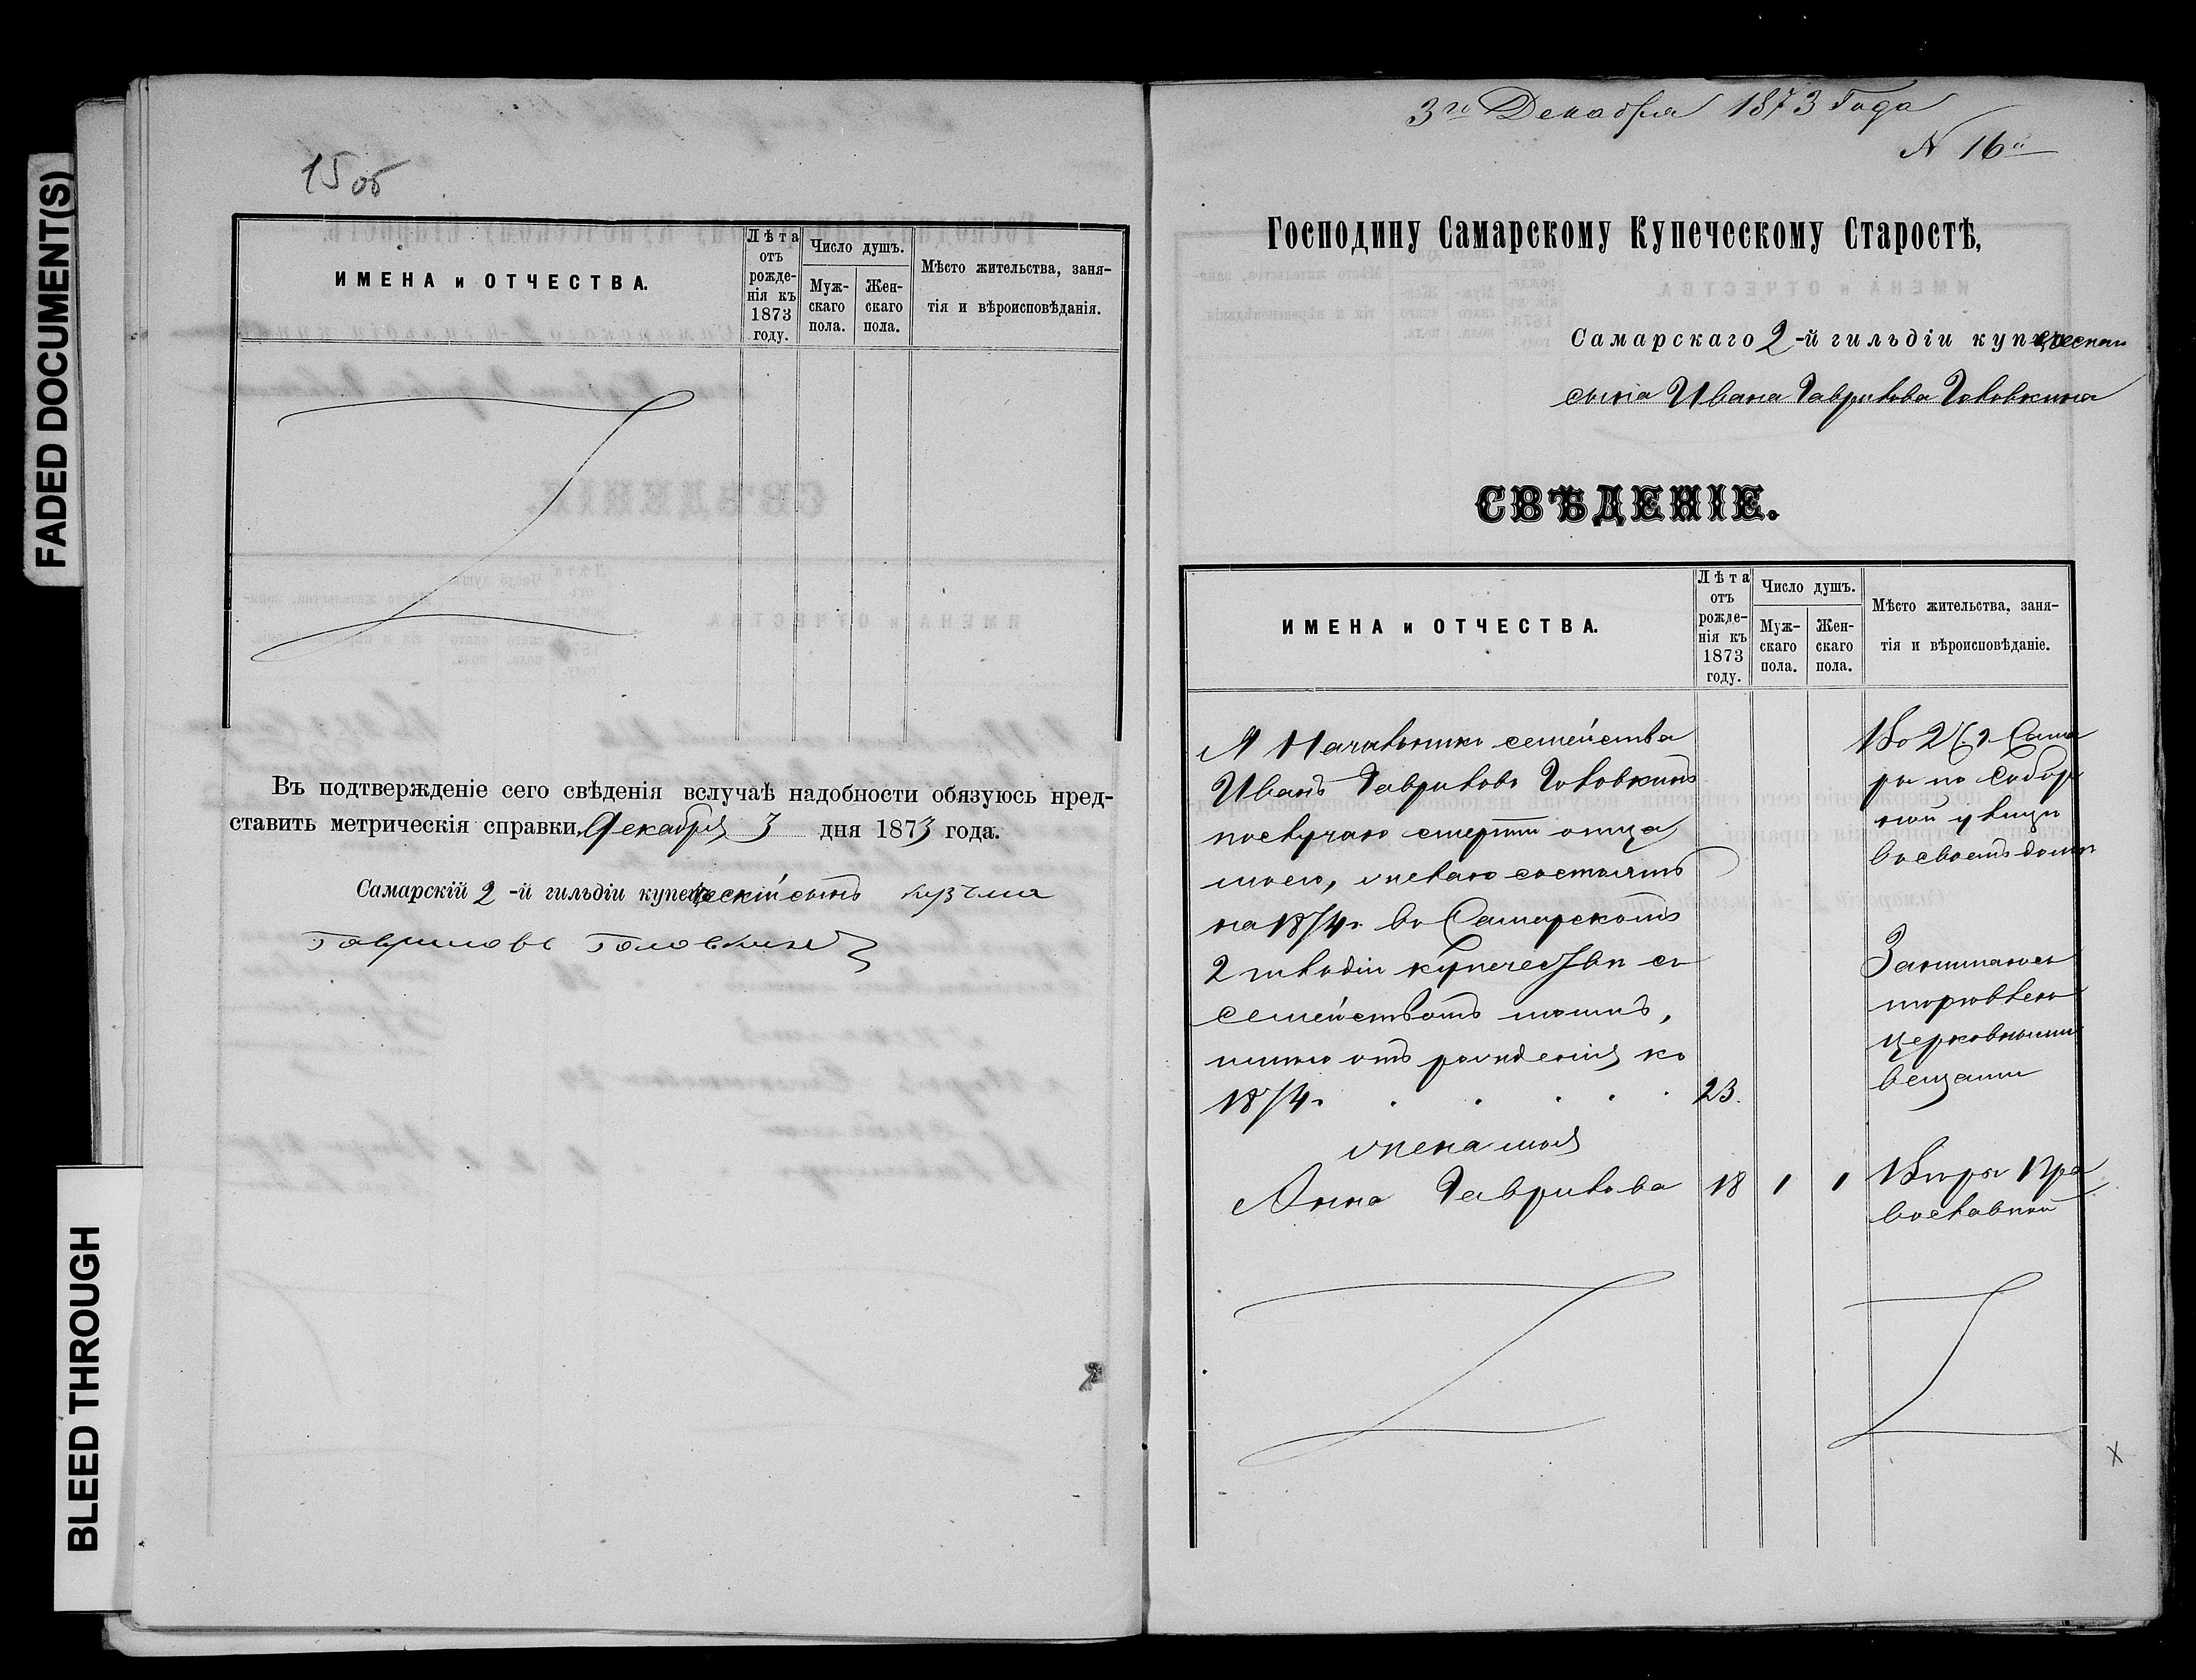 FADED DOCUMENT(S)
BLEED THROUGH
15 об
ИМЕНА и ОТЧЕСТВА.
Лѣта отъ рожде-нія къ 1873 году.
Число душъ.
Муж-скаго пола.
Жен-скаго пола.
Мѣсто жительства, заня-
тія и вѣроисповѣданія.
Въ подтвержденіе сего свѣденія вслучаѣ надобности обязуюсь пред-
ставить метрическія справки, Декабря 3 дня 1873 года.
Самарскій 2-й гильдіи купеческій сынъ Кузьма
Гавриловъ Головкинъ
3го Декабря 1873 Года
N 16й
Господину Самарскому Купеческому Старостѣ,
Самарскаго 2-й гильдіи купеческаго
сына Ивана Гаврилова Головкина
СВѢДЕНІЕ.
ИМЕНА и ОТЧЕСТВА.
Лѣта отъ рожде-нія къ 1873 году.
Число душъ.
Муж-скаго пола.
Жен-скаго пола.
Мѣсто жительства, заня-
тія и вѣроисповѣданіе.
Я Начальникъ семейства
Иванъ Гавриловъ Головкинъ
послучаю смерти отца
моего, желаю состоять
на 1874 г. въ Самарскомъ
2 гильдіи купечествѣ съ
семействомъ моимъ,
мнѣ отъ рожденія къ
1874 г. . . . . . 23.
жена моя
Анна Гаврилова 18 1 1
Во 2 ч. г. Сама
рѣ по Собор
ной улицѣ
въ своемъ домѣ
Занимаюсь
торговлею
церковными
вещами
Вѣры Пра
вославной